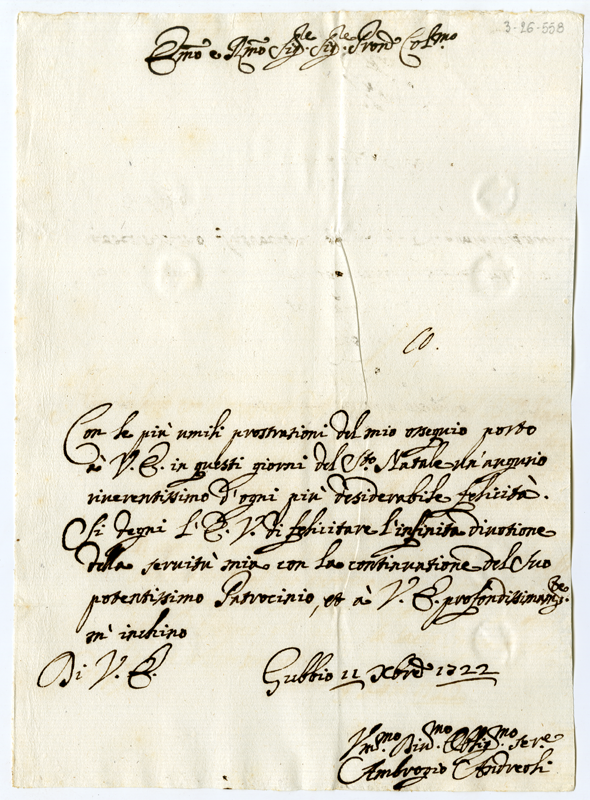 3-26-558
Emo e Rmo Sigre Sigre Prone Colmo
Co.
Con le più umili prostrationi del mio ossequio porto
à V. E. in questi giorni del Sto Natale un'augurio
riverentissimo d'ogni più desiderabile felicità.
Si degni l'E. V. di felicitare l'infinita divotione
della servitù mia con la continuatione del Suo
potentissimo Patrocinio, et à V. E. profondissimamte
m'inchino
Di V. E.
Gubbio 11 Xbre 1722
Vmo Divmo Obligmo Serre
Ambrogio Andreoli